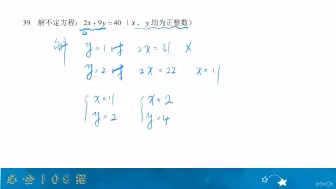 39. 解不定方程：2x+9y=40（x，y 均为正整数）
解 y=1时 2x=31 ×
y=2时 2x=22 x=11
{x=11 {x=2
y=2 y=4
必会108招